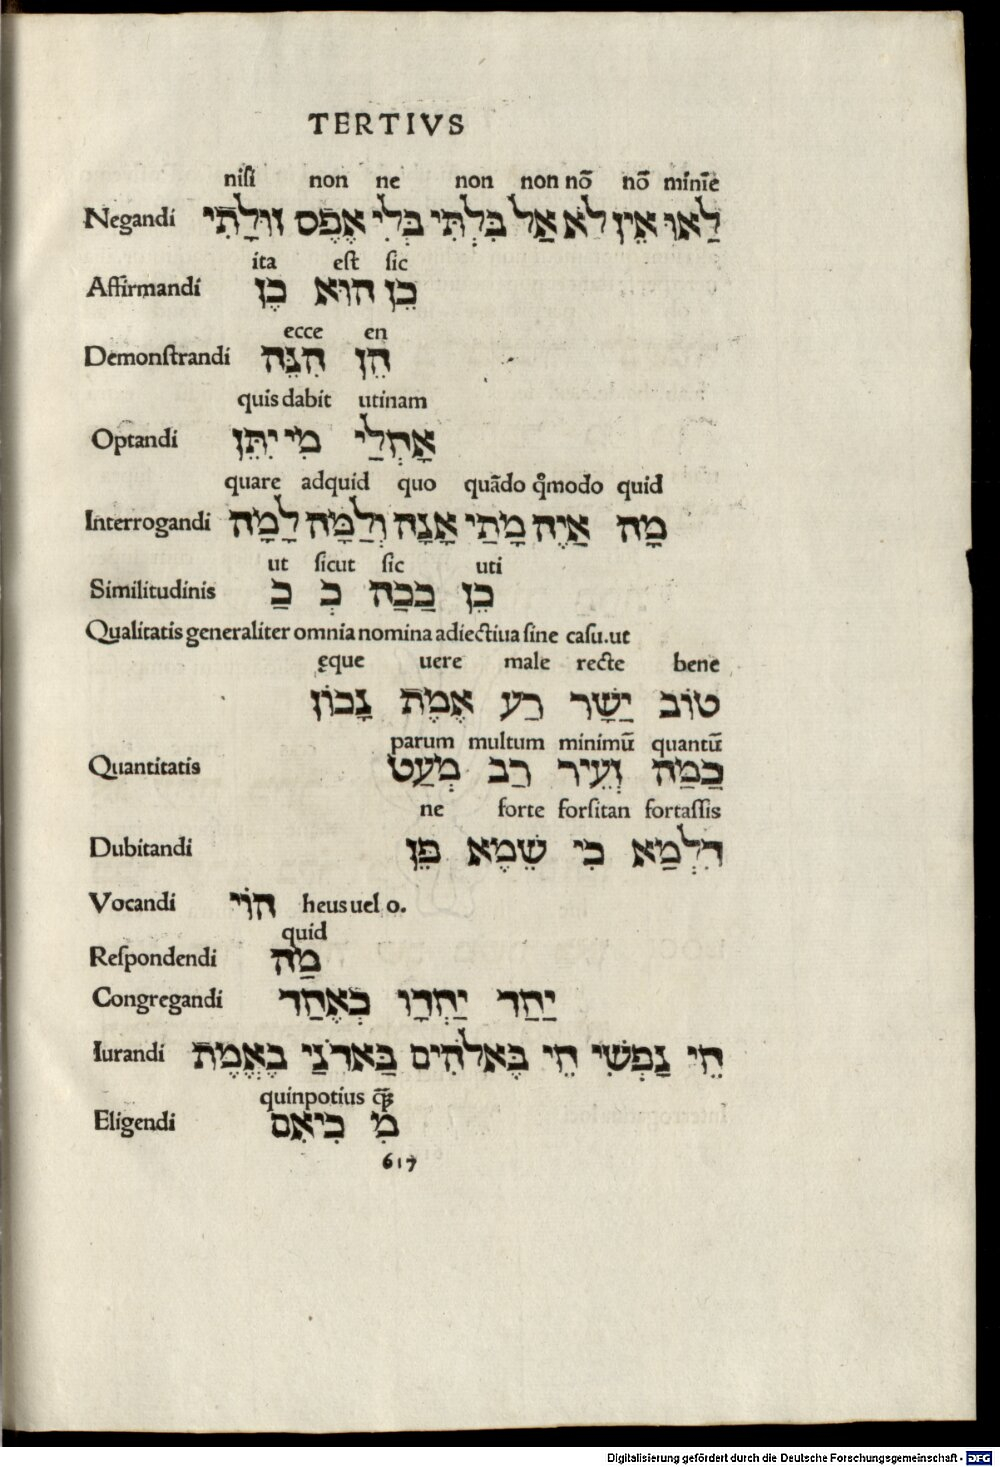 TERTIVS
niſi non ne non non nō nō minīe
Negandi לַאוּ אֵין לֹא אַל בִּלְתִּי בְּלִי אֶפֶס זוּלָתִי
ita eſt ſic
Affirmandi כֵן הוּא כֶן
ecce en
Demonſtrandi הֵן הִנֵּה
quis dabit utinam
Optandi אָחְלַי מִי יִתֵּן
quare adquid quo quādo q̊modo quid
Interrogandi מָה אַיֶה מָתַי אָנָה וְלַמָּה לָמָה
ut ſicut ſic uti
Similitudinis כֵן כַּכַה כְּ כַּ
Qualitatis generaliter omnia nomina adiectiua ſine caſu.ut
ęque uere male recte bene
טוֹב יַשָׁר רַע אֱמֶת נָכוֹן
parum multum minimū quantū
Quantitatis כַּמַה וְעֵיר רַב מְעַט
ne forte forſitan fortaſſis
Dubitandi דִלְמַא כִּי שֶׁמֶא פֶּן
Vocandi הוֹי heus uel o.
quid
Reſpondendi מַה
Congregandi יַחַד יַחְדָו כְּאֶחַד
Iurandi חֵי נַפְשִׁי חֵי בֶּאלֹהִים בַּאדֹנַי בֶאֱמֶת
quinpotius q̄ꝫ
Eligendi מִ כִּיאִם
617
Digitalisierung gefördert durch die Deutsche Forschungsgemeinschaft - DFG